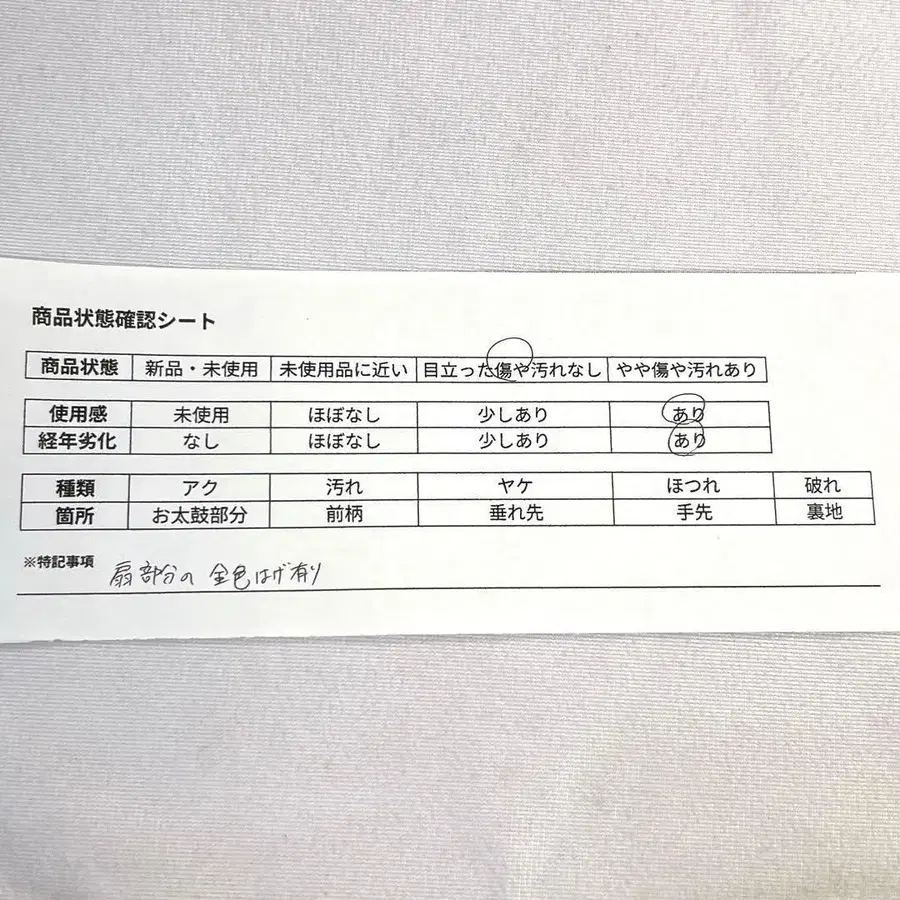 商品状態確認シート
商品状態 新品・未使用 未使用品に近い 目立った傷や汚れなし やや傷や汚れあり
使用感 未使用 ほぼなし 少しあり あり
経年劣化 なし ほぼなし 少しあり あり
種類 アク 汚れ ヤケ ほつれ 破れ
箇所 お太鼓部分 前柄 垂れ先 手先 裏地
※特記事項 扇部分の金色はげ有り